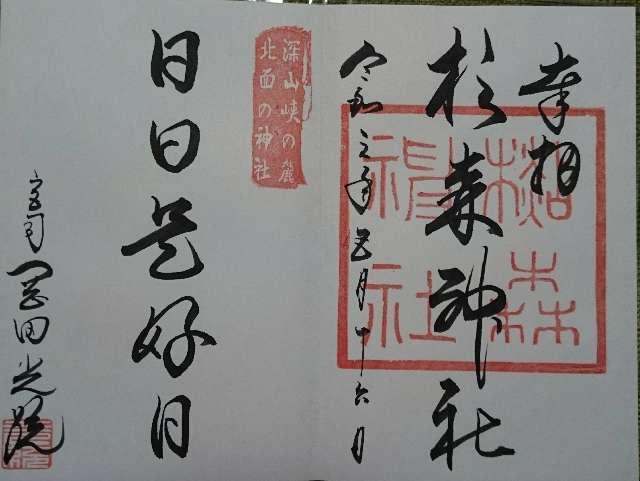 奉拝
松森神社
令和元年五月十六日
松森
神社
深山峡の麓
北面の神社
日日是好日
宮司 岡田光